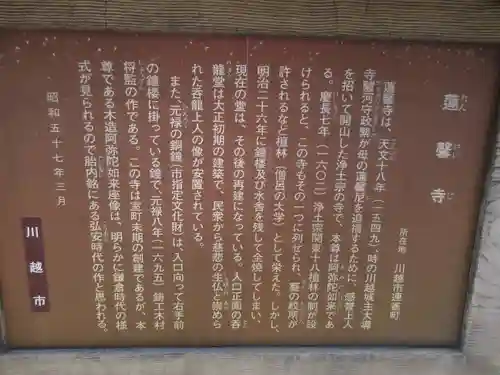 蓮馨寺
れんけいじ
所在地 川越市連雀町
蓮馨寺は、天文十八年（一五四九）、時の川越城主大導
寺駿河守政繁が母の蓮馨尼を追福するために、感誉上人
を招いて開山した浄土宗の寺で、本尊は阿弥陀如来であ
る。慶長七年（一六〇二）浄土宗関東十八檀林の制が設
けられると、この寺もその一つに列せられ、葵の紋所が
許されるなど檀林（僧呂の大学）として栄えた。しかし、
明治二十六年に鐘楼及び水舎を残して全焼してしまい、
現在の堂は、その後の再建になっている。入口正面の呑
龍堂は大正初期の建築で、民衆から慈悲の生仏と崇めら
れた呑龍上人の像が安置されている。
また、元禄の銅鐘（市指定文化財）は、入口向って右手前
の鐘楼に掛っている鐘で、元禄八年（一六九五）鋳工木村
将監の作である。この寺は室町末期の創建であるが、本
尊である木造阿弥陀如来座像は、明らかに鎌倉時代の様
式が見られるので胎内銘にある弘安時代の作と思われる。
昭和五十七年三月
川越市